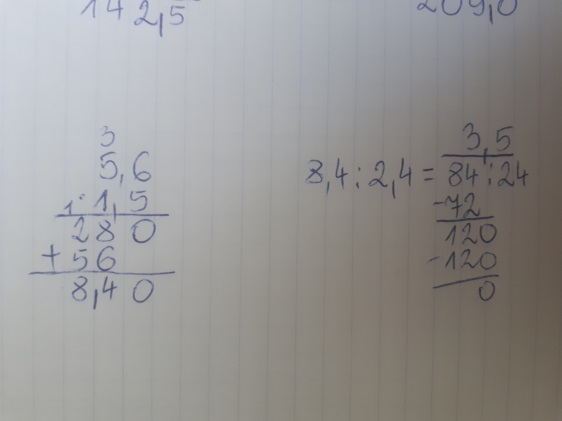 142,5
209,0
3
5,6
1· 1,5
280
+56
8,40
3,5
8,4:2,4=84:24
-72
120
-120
0